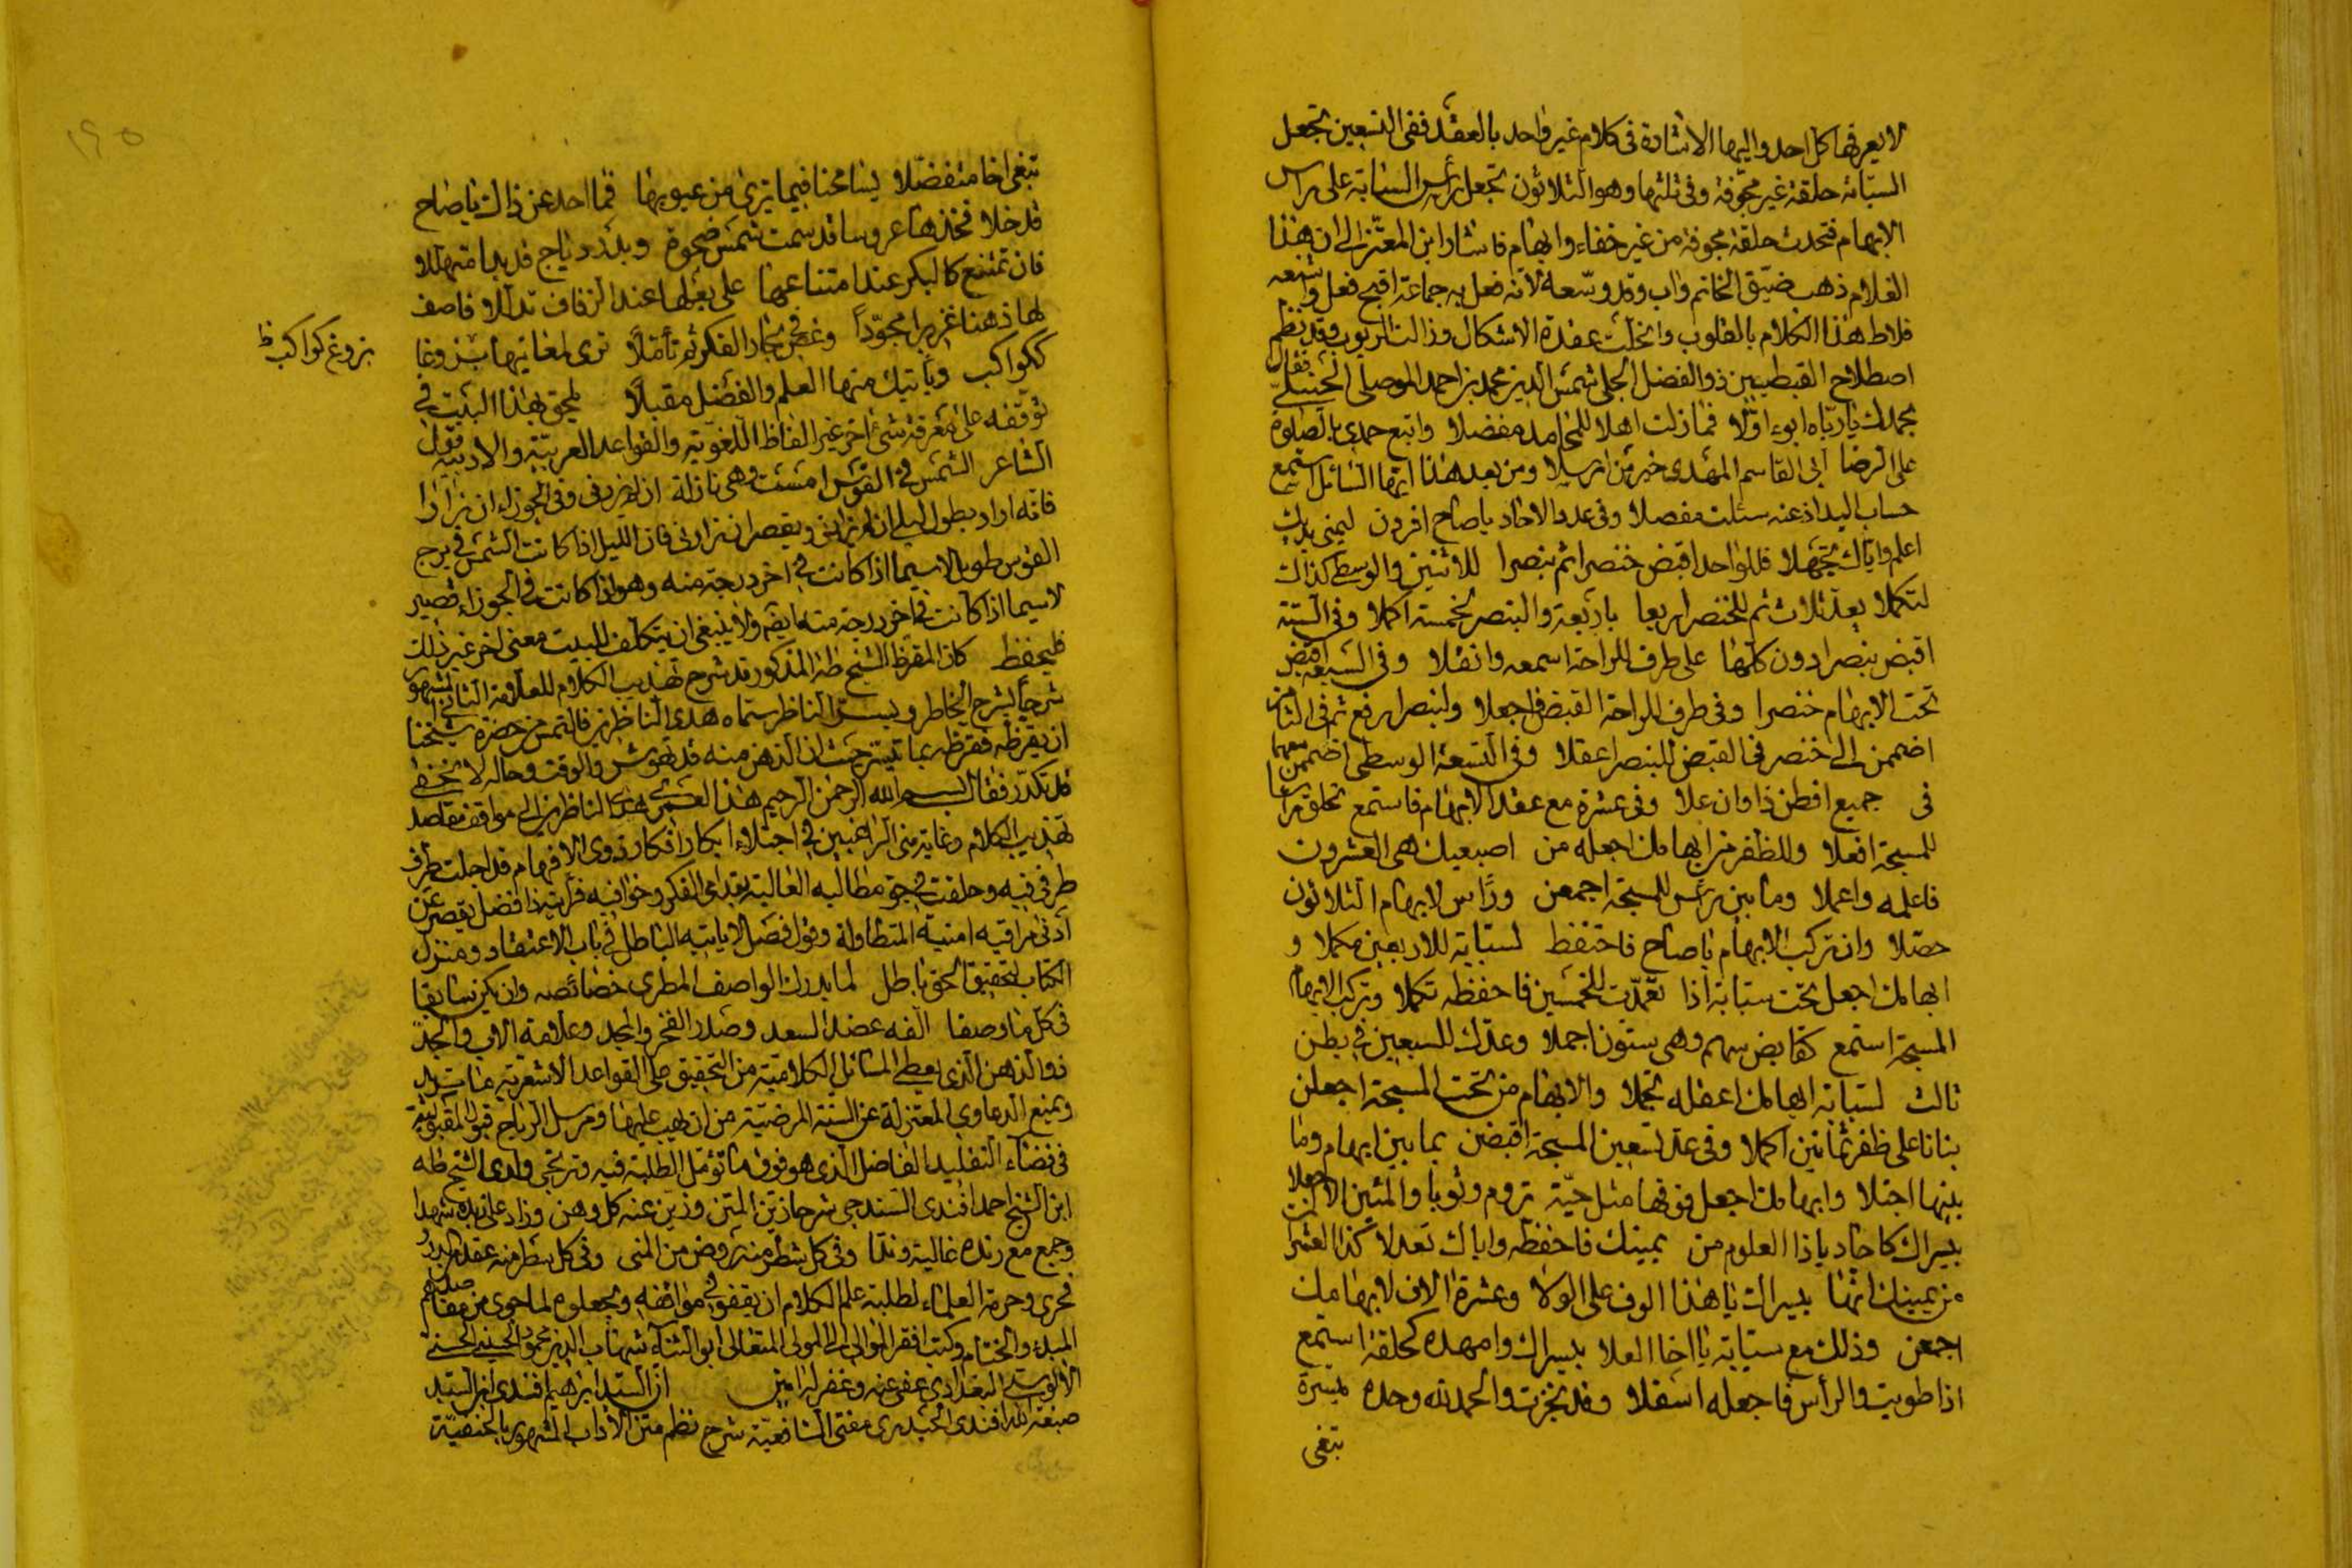 لا يعرفها كل احد واليها الاشارة فى كلام غير واحد بالعقد ففى التسعين تجعل
السبابة حلقة غير مجوفة وفى ثلثها وهو الثلاثون تجعل رأس السبابة على راس
الابهام فتحدث حلقة مجوفة من غير خفاء وابهام فاشار ابن المعتز الى ان هذا
الغلام ذهب ضيق الخاتم واب وقد وسعه لانه فعل به جماعة اقبح فعل واشنعه
فلاط هذا الكلام بالقلوب وانحلت عقدة الاشكال وذا لت الريوب وقد نظم
اصطلاح القبطيين ذو الفضل الجلى شمس الدين محمد بن احمد الموصلى الحنبلى فقال
بحمدك يا رباه ابدء اولا فما زلت اهلا للمحامد مفضلا واتبع حمدى بالصلوة
على الرضا ابى القاسم المهدى خير من ارسلا ومن بعد هذا ايها السائل استمع
حساب اليد اذ عنه سئلت مفصلا وفى عدد الاحاد يا صاح افردن ليمنى يديك
اعلم واياك تجهلا فللواحد اقبض خنصرا ثم بنصرا للاثنين والوسطى كذاك
لتكملا بعد ثلاث ثم للخنصر ارفعا باربعة والبنصر لخمسة اكملا وفى الستة
اقبض بنصرا دون كلها على طرف للراحة اسمعه وانقلا وفى السبعة اقبض
تحت الابهام خنصرا وفى طرف للراحة القبض فاجعلا ولبنصر ارفع ثم فى الثامن
اضممن الى خنصر فى القبض للبنصر اعقلا وفى التسعة الوسطى اضممن معهما
فى جميع افطن ذا وان علا وفى عشرة مع عقد الابهام فاستمع تحلق راسا
للمسبحة افعلا وللظفر من ابهامك اجعله من اصبعيك هى العشرون
فاعلمه واعملا وما بين رأس للمسبحة اجمعن ورأس لابهام الثلاثون
حصلا وان تركب الابهام يا صاح فاحتفظ لسبابة للاربعين مكملا و
ابهامك اجعل تحت سبابة اذا تعمدت للخمسين فاحفظه تكملا وتركب الابهام
المسبحة استمع كقابض سهم وهى ستون اجملا وعدك للسبعين فى بطن
ثالث لسبابة ابهامك اعقله تجملا والابهام من تحت المسبحة اجعلن
بنانا على ظفر ثمانين اكملا وفى عد تسعين المسبحة اقبضن بما بين ابهام وما
بينها اجتلا وابهامك اجعل فوقها مثل حية تروم وثوبا والمئين اجعلا
بيسراك كاحاد يا ذا العلوم من يمينك فاحفظه واياك تعدلا كذا العشرات
من يمينك انها بيسراك يا هذا الوف على الولا وعشرة الاف لابهامك
اجمعن وذلك مع سبابة يا اخا العلا بيسراك وامهده كحلقة استمع
اذا طويت والرأس فاجعله اسفلا وقد نجزت والحمد لله وحده ميسرة
تبغى
١٩٥
تبغى اخا متفضلا يسامحنا فيما يرى من عيوبها فما احد عن ذاك يا صاح
قد خلا فخذها عروسا قد سمت شمس ضحوة وبدر دياج قد بدا متهللا
فان تمتنع كالبكر عند امتناعها على بعلها عند الزفاف تدللا فاصف
لها ذهنا غزيرا مجودا وغص فى بحار الفكر ثم تأملا ترى لمعانيها بزوغا
بزوغ كواكب ظ
ككواكب وياتيك منها العلم والفضل مقبلا يلحق بهذا البيت فى
توقفه على معرفة شئ اخر غير الفاظ اللغوية والقواعد العربية والادبية قول
الشاعر الشمس فى القوس امست وهى نازلة ان لم يزرنى وفى الجوزاء ان زارا
فانه اراد يطول ليلى ان لم يزرنى ويقصر ان زارنى فان الليل اذا كانت الشمس فى برج
القوس طويل لاسيما اذا كانت فى اخر درجة منه وهو اذا كانت فى الجوزاء قصير
لاسيما اذا كانت فى اخر درجة منه ولا ينبغى ان يتكلف للبيت معنى اخر غير ذلك
فليحفظ كان المقرظ الشيخ طه المذكور قد شرح تهذيب الكلام للعلامة الثانى المشهور
شرحا يشرح الخاطر ويسر الناظر سماه هدى الناظرين فالتمس من حضرة شيخنا
ان يقرظه فقرظه بما تيسر حيث ان الذهن منه قد تهوش والوقت وحاله لا تخفى
قد تكدر فقال بسم الله الرحمن الرحيم هذا لعمرى هدى الناظرين الى مواقف مقاصد
تهذيب الكلام وغاية منى الراغبين فى اجتلاء ابكار افكار ذوى الافهام قد اجلت طرف
طرفى فيه وحلقت فى جو مطالبه العالية بقدامى الفكر وخوافيه فرأيته ذا فضل يقصر عن
ادنى مراقيه امنية المتطاولة وقول فصل لا ياتيه الباطل فى باب الاعتقاد ومنزل
الكتاب لتحقيق الحق باطل لما يدرك الواصف المطرى خصائصه وان يكن سابقا
فى كل ما وصفا الفه عضد السعد وصدر الفخر والمجد وعلامة الاب والجد
ذو الذهن الذى يعطى المسائل الكلامية من التحقيق على القواعد الاشعرية ما تريد
ويمنع الدعاوى المعتزلة عن السنة المرضية من ان يهب عليها ومرسل الرياح قبول المقبولية
فى فضاء التقليد الفاضل الذى هو فوق ما تؤمل الطلبة فيه وترتجى ولدى الشيخ طه
ابن الشيخ احمد افندى السندجى شرحا زين المتن وزين عنه كل وهن وزاد على زبده شهدا
وجمع مع رنده غالية وندا وفى كل شطر منه روض من المنى وفى كل سطر منه عقد من الدرر
فحرى وحرمة العلماء لطلبة علم الكلام ان يقفوا فى مواقفه ويجعلوه لما حوى من مقاصدهم
المبدء والختام وكتب افقر الموالى الى المولى المتعالى ابو الثناء شهاب الدين محمود الحسينى الحسنى
الالوسى البغدادى عفى عنه وغفر له امين ان السيد ابراهيم افندى ابن السيد
صبغة الله افندى الحيدرى مفتى الشافعية شرح نظم متن الاداب المشهور بالحنفية